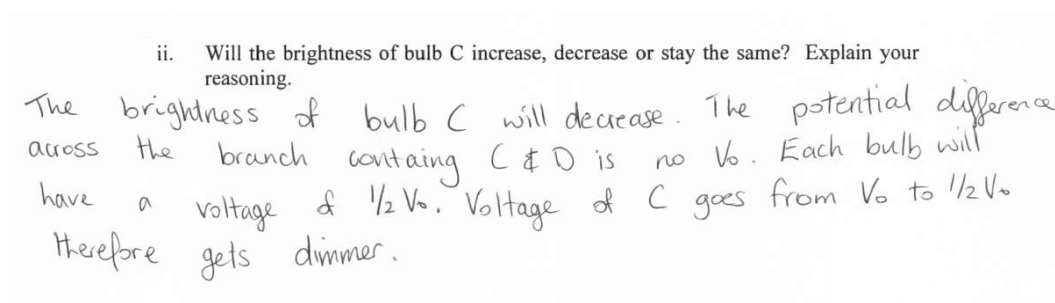 ii. Will the brightness of bulb C increase, decrease or stay the same? Explain your
reasoning.
The brightness of bulb C will decrease. The potential difference
across the branch containg C & D is no V₀. Each bulb will
have a voltage of 1/2 V₀. Voltage of C goes from V₀ to 1/2 V₀
therefore gets dimmer.